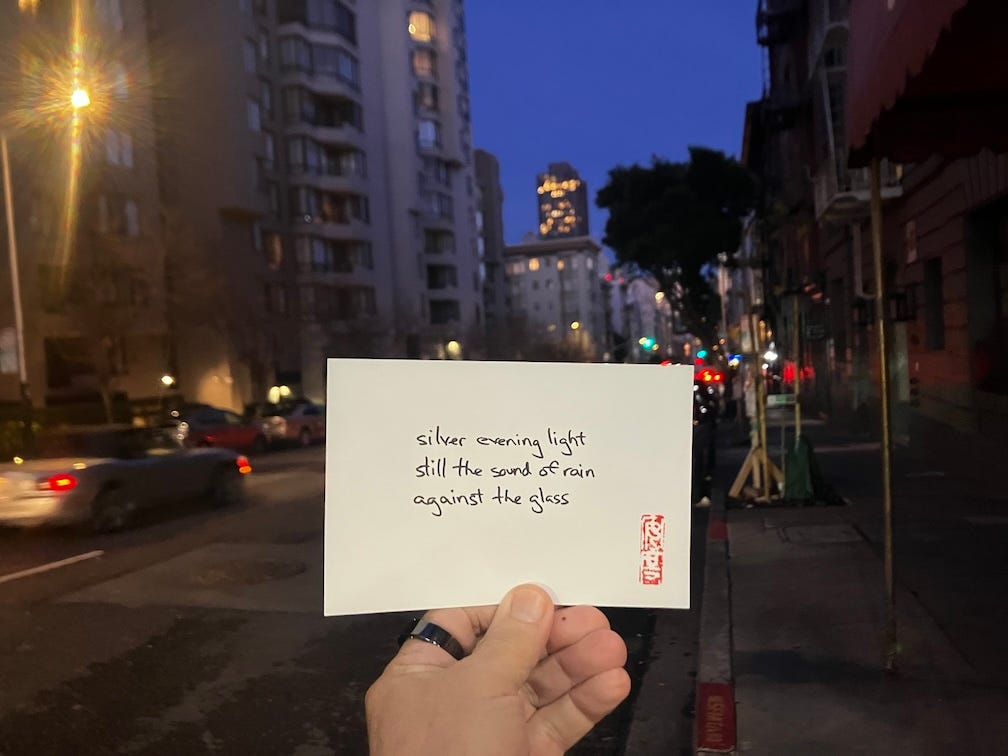 silver evening light
still the sound of rain
against the glass